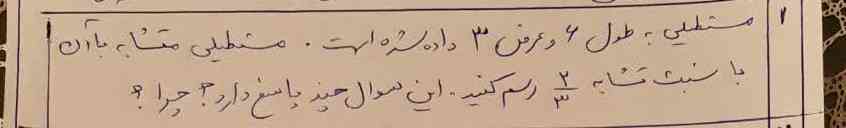 ۱ مستطیلی به طول ۶ و عرض ۳ داده شده است . مستطیلی متشابه با آن
با نسبت تشابه ۲/۳ رسم کنید . این سوال چند پاسخ دارد ؟ چرا ؟